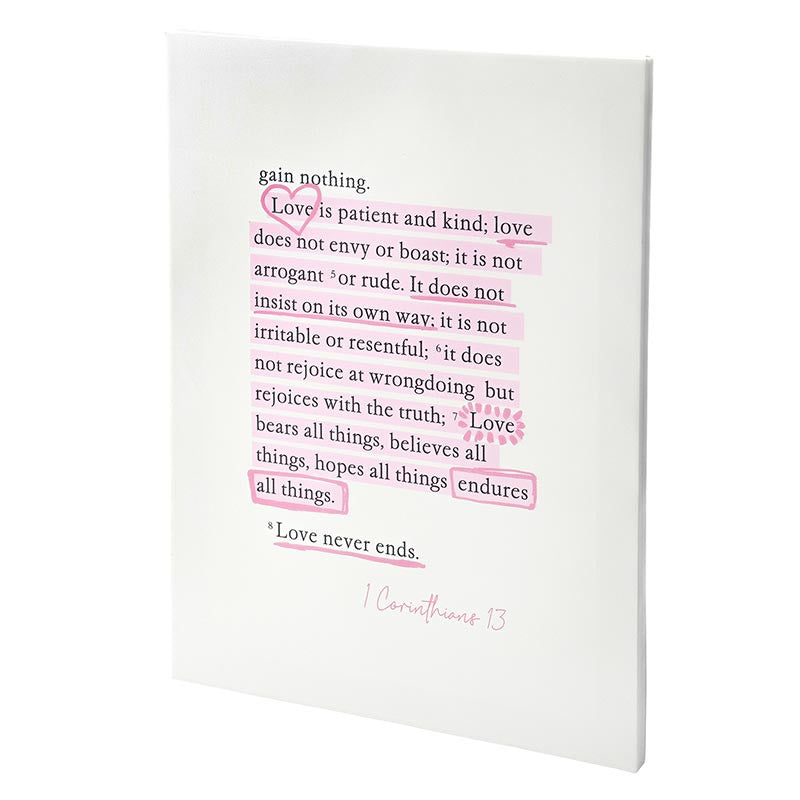 gain nothing.
Love is patient and kind; love
does not envy or boast; it is not
arrogant ⁵or rude. It does not
insist on its own way; it is not
irritable or resentful; ⁶it does
not rejoice at wrongdoing but
rejoices with the truth; ⁷ Love
bears all things, believes all
things, hopes all things endures
all things.
⁸Love never ends.
1 Corinthians 13